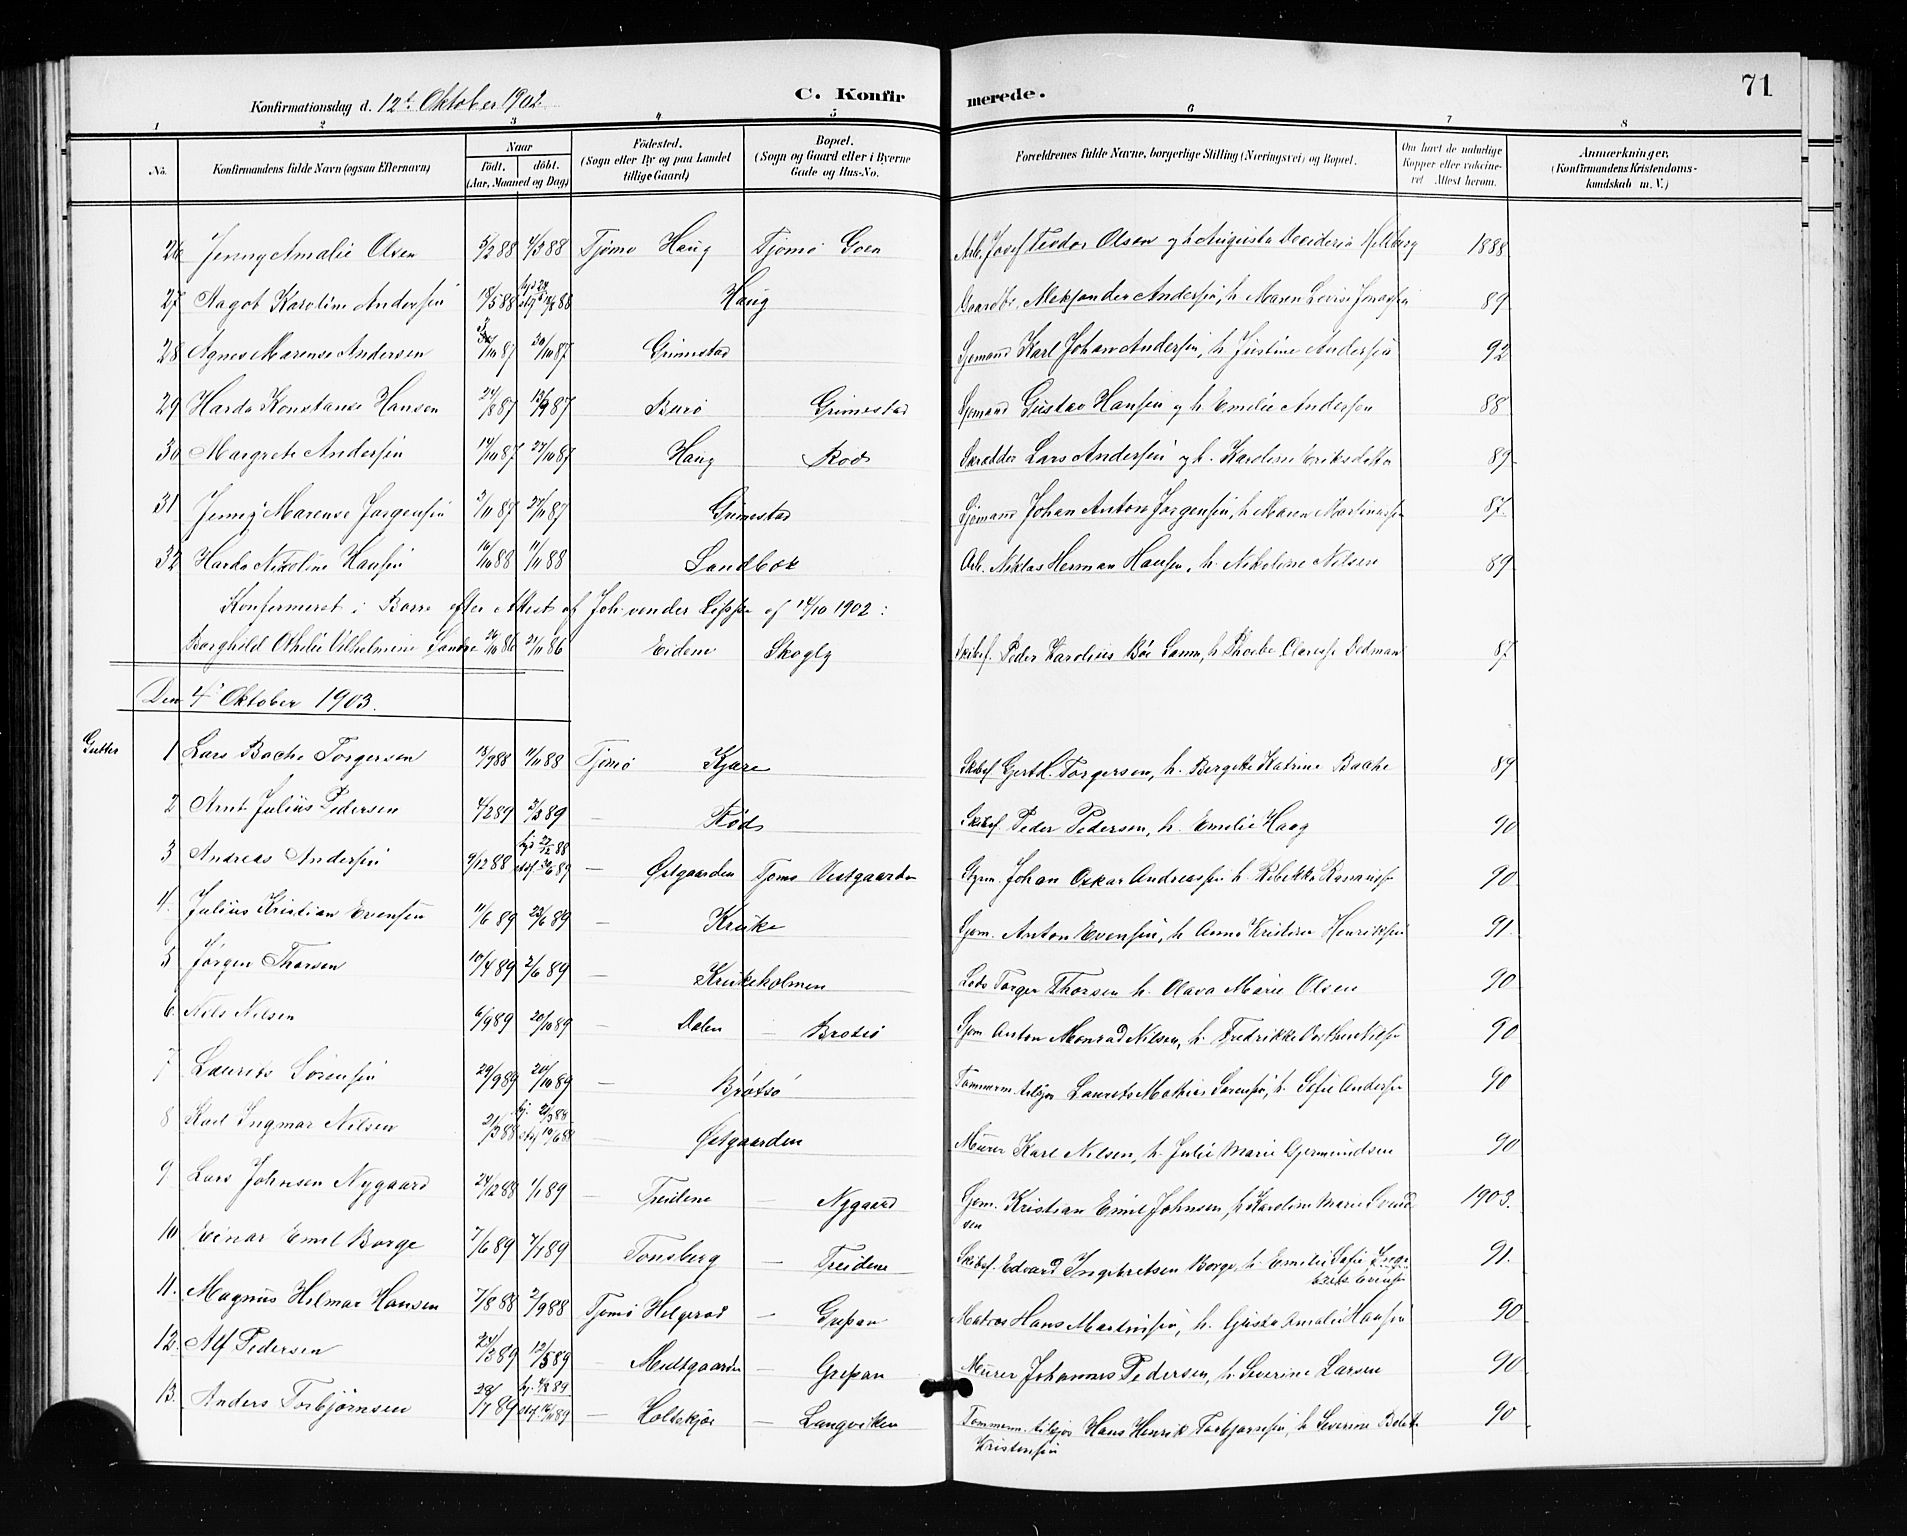 71
Konfirmationsdag d. 12t Oktober 1902 C. Konfirmerede.
1 2 3 4 5 6 7 8
No. Konfirmandens fulde Navn (ogsaa Efternavn) Naar födt. döbt. (Aar, Maaned og Dag) Födested. (Sogn eller By og paa Landet tillige Gaard) Bopæl. (Sogn og Gaard eller i Byerne Gade og Hus-No.) Forældrenes fulde Navne, borgerlige Stilling (Næringsvei) og Bopæl. Om havt de naturlige Kopper eller vaksineret Attest herom. Anmærkninger, (Konfirmandens Kristendomskundskab m. V.)
26 Jenny Amalie Olsen 5/2 88 4/3 88 Tjömö Haug Tjömö Goen Arb. Josef Teodor Olsen og h. Augusta Desideria Hellberg 1888
27 Aagot Karoline Andersen 18/5 88 Haug Gaardbr. Aleksander Andersen, h. Maren Lovise Jonassen 89
28 Agnes Marense Andersen /10 87 30/10 87 Grimestad Sjømand Karl Johan Andersen, h. Justine Andersen 92
29 Harda Konstanse Hansen 24/8 87 18/9 87 Burö Grimestad Sjømand Gustav Hansen og h. Emelie Andersen 88
30 Margrete Andersen 14/10 87 27/10 87 Haug Röds Skrædder Lars Andersen og h. Karoline Eriksdatter 89
31 Jenny Marense Jørgensen 2/11 87 27/11 87 Grimestad Sjømand Johan Anton Jørgensen, h. Maren Martinussen 87.
32 Harda Nikoline Hansen 16/10 88 11/11 88 Sandbæk Arb. Niklas Herman Hansen, h. Nikoline Nilsen 89
Konfirmeret i Borre efter Attest af Joh. von der Lippe af 14/10 1902:
Borghild Othelie Vilhelmine 26/10 86 21/11 86 Eidene Skogly Skibsf. Peder Karolius Bøe h. Phoebe Dedman 87
Den 4de Oktober 1903.
Gutter
1 Lars Bache Torgersen 13/9 88 11/11 88 Tjömö Kjære Skibsf. Gerth. Torgersen, h. Bergette Katrine Bache 89
2 Arnt Julius Pedersen 4/2 89 3/3 89 — Röds Skibsf. Peder Pedersen, h. Emelie Haag 90
3 Andreas Andersen 9/12 88 hj. 27/12 88 stf. 30/6 89 — Østgaarden Tjömö Vestgaarden Sjøm. Johan Oskar Andreassen h. Rebekka 90
4. Julius Kristian Evensen 11/6 89 23/6 89 — Kruke Sjøm. Anton Evensen, h. Anna Kristine Henriksen 91.
5 Jørgen Thorsen 10/4 89 2/6 89 — Krukeholmen Lods Torger Thorsen h. Olava Marie Olsen 90
6. Nils Nilsen 6/9 89 20/10 89 — Dalen — Brøtsö Sjøm Anton Monrad Nilsen, h. Fredrikke Nilsen 90
7 Laurits Sörensen 29/9 89 20/10 89 — Brøtsö Tømmerm. tilsjøs Laurits Mathias Sørensen, h. Sofie Andersen 90
8 Karl Ingmar Nilsen 2/3 88 hj. 21/3 88 stf. 10/6 88 — Østgaarden Murer Karl Nilsen, h. Julie Marie Gjermundsen 90
9 Lars Johnsen Nygaard 24/12 88 1/1 89 — Treidene — Nygaard Sjøm. Kristian Emil Johnsen, h. Karoline Marie Svendsen 1903.
10 Einar Emil Borge 7/6 89 7/7 89 Tonsberg — Treidene Skibsf. Edvard Ingebretsen Borge, h. Emelie Sofie Evensen 91.
11. Magnus Hilmar Hansen 7/8 88 2/9 88 Tjömö Helgerød — Grepan Matros Hans Martinsen, h. Gusta Amalie Hansen 90
12. Alf Pedersen 24/3 89 12/5 89 — Midtgaarden — Grepan Murer Johannes Pedersen, h. Severine Larsen 90
13. Anders Torbjørnsen 28/7 89 stf. 10/11 89 — Holtekjær — Langviken Tømmerm. tilsjøs Hans Henrik Torbjørnsen, h. Severine Kristensen 90